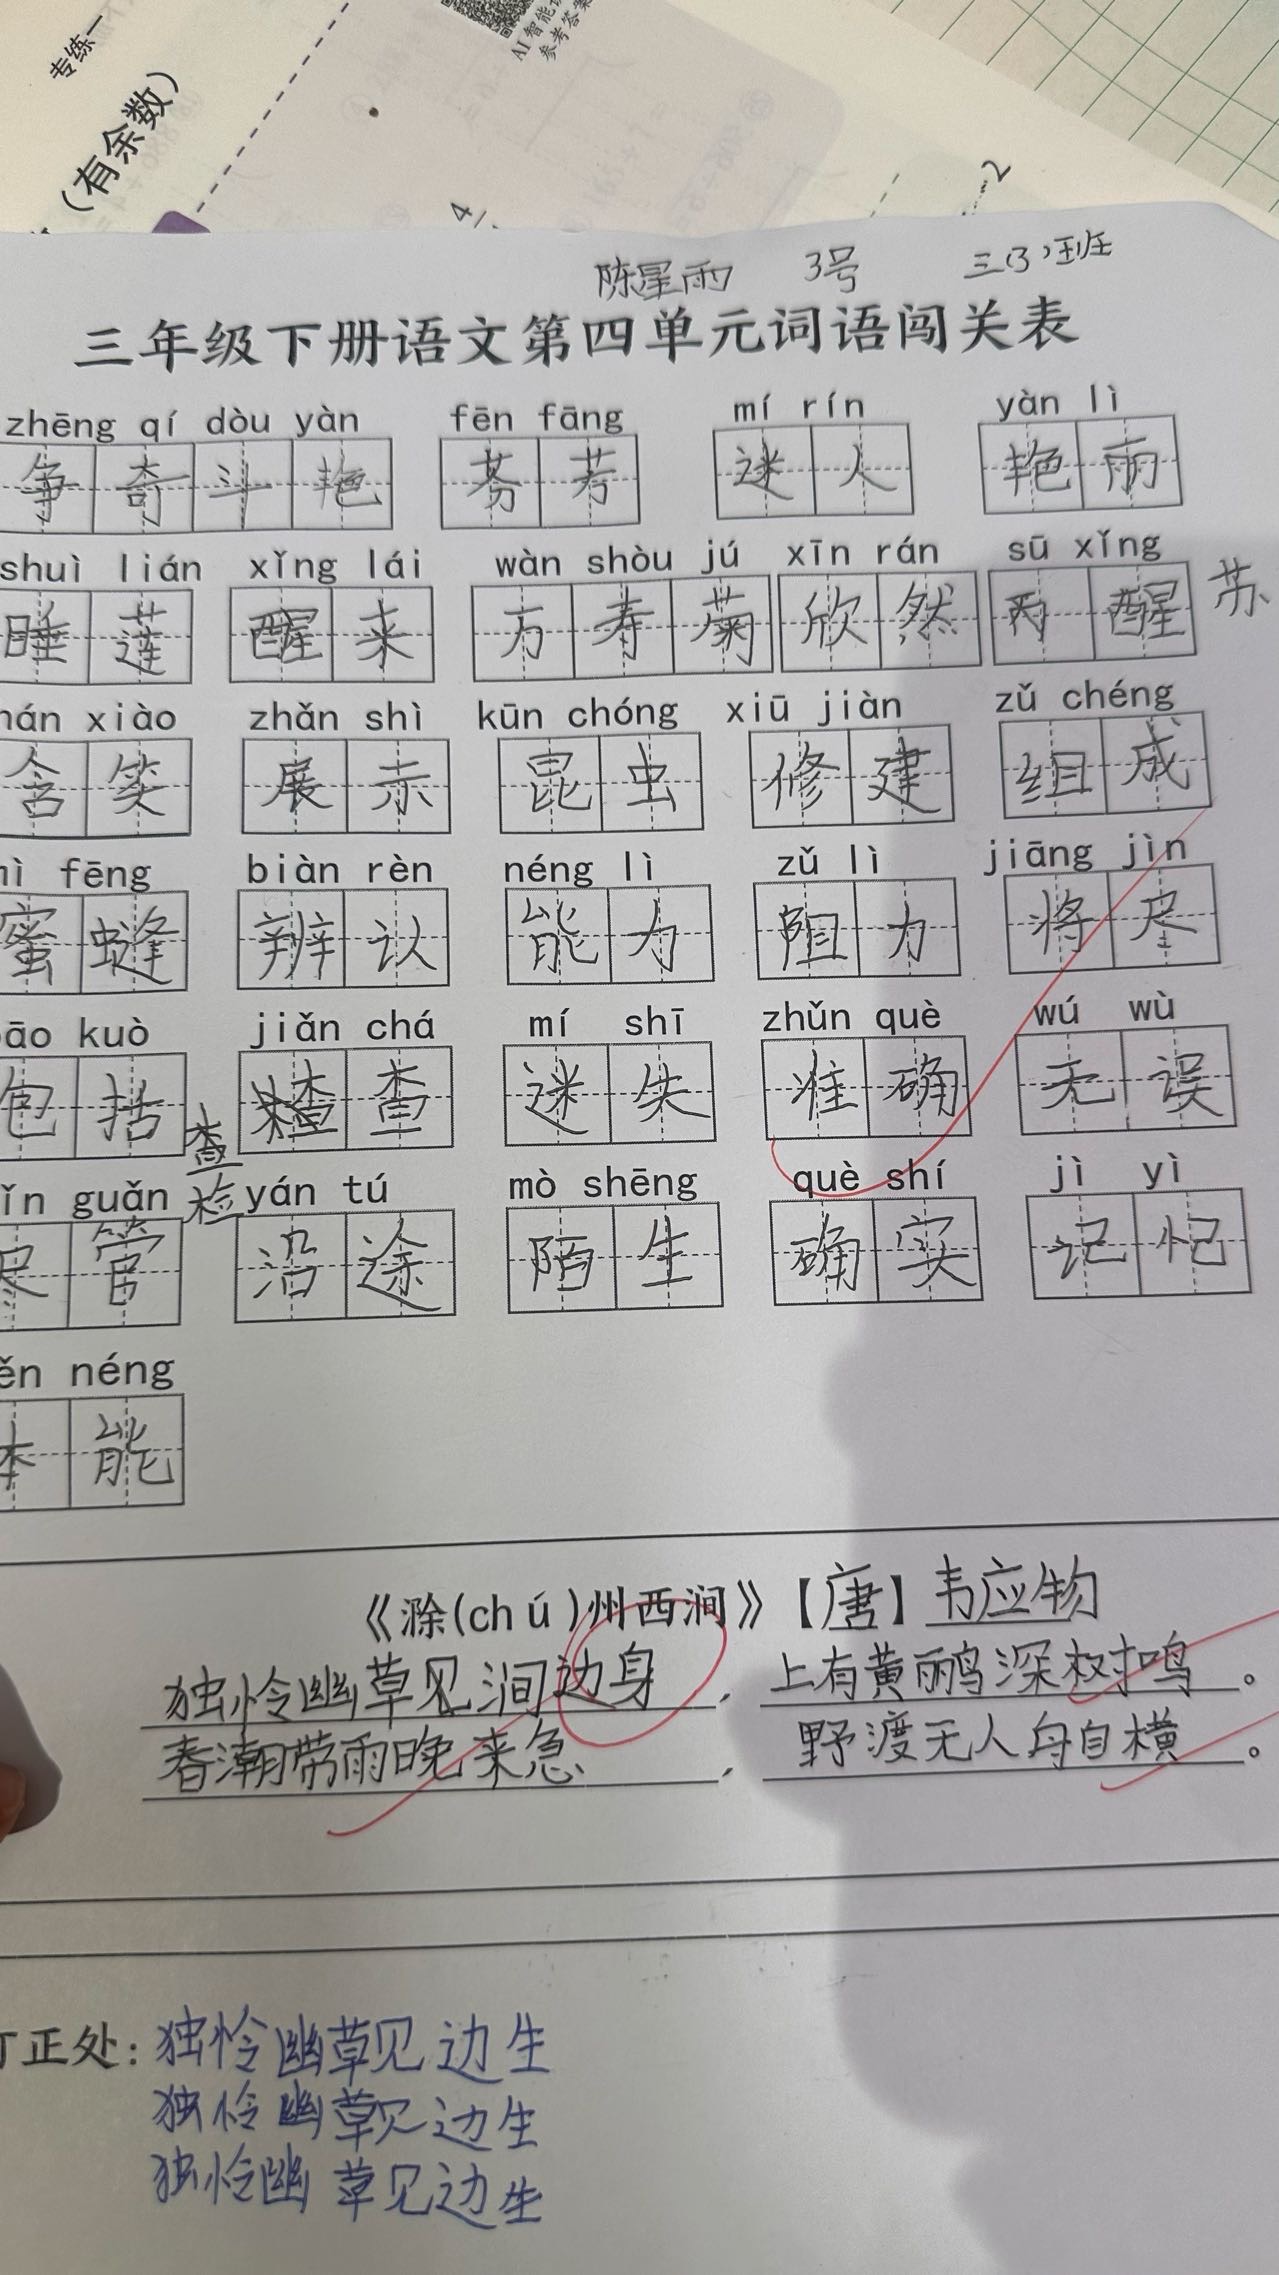 专练一
AI智能
参考答案
（有余数）
陈星雨 3号 三(3)班
三年级下册语文第四单元词语闯关表
zhēng qí dòu yàn fēn fāng mí rín yàn lì
争奇斗艳 芬芳 迷人 艳雨
shuì lián xǐng lái wàn shòu jú xīn rán sū xǐng
睡莲 醒来 万寿菊 欣然 醒 苏
hán xiào zhǎn shì kūn chóng xiū jiàn zǔ chéng
含笑 展示 昆虫 修建 组成
mì fēng biàn rèn néng lì zǔ lì jiāng jìn
蜜 辨认 能力 阻力 将尽
bāo kuò jiǎn chá mí shī zhǔn què wú wù
包括 查 迷失 准确 无误
查
检
jǐn guǎn yán tú mò shēng què shí jì yì
尽管 沿途 陌生 确实 记忆
běn néng
本能
《滁(chú)州西涧》【唐】韦应物
独怜幽草见涧边身，上有黄鹂深树鸣。
春潮带雨晚来急，野渡无人舟自横。
订正处：独怜幽草见边生
独怜幽草见边生
独怜幽草见边生